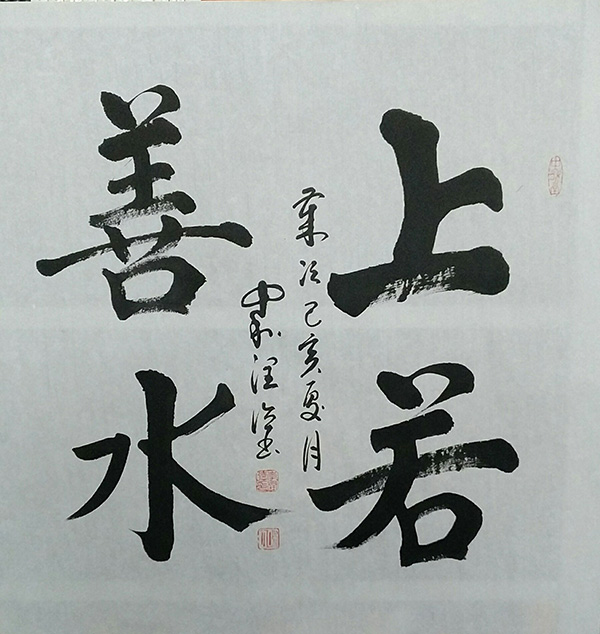 上善
若水
歲次己亥夏月